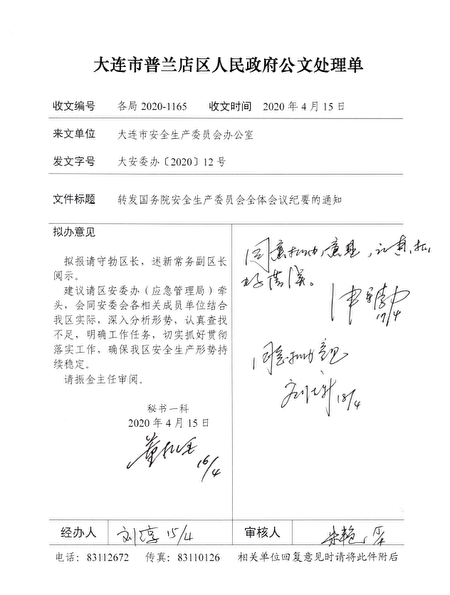 大连市普兰店区人民政府公文处理单
收文编号 各局 2020-1165 收文时间 2020 年 4 月 15 日
来文单位 大连市安全生产委员会办公室
发文字号 大安委办〔2020〕12 号
文件标题 转发国务院安全生产委员会全体会议纪要的通知
拟办意见
拟报请守勃区长、述新常务副区长
阅示。
建议请区安委办（应急管理局）牵
头，会同安委会各相关成员单位结合
我区实际，深入分析形势，认真查找
不足，明确工作任务，切实抓好贯彻
落实工作，确保我区安全生产形势持
续稳定。
请振金主任审阅。
秘书一科
2020 年 4 月 15 日
16/4
同意拟办意见，认真抓
好落实。
17/4
同意拟办意见
18/4
经办人 15/4 审核人
电话：83112672 传真：83110126 相关单位回复意见时请将此件附后